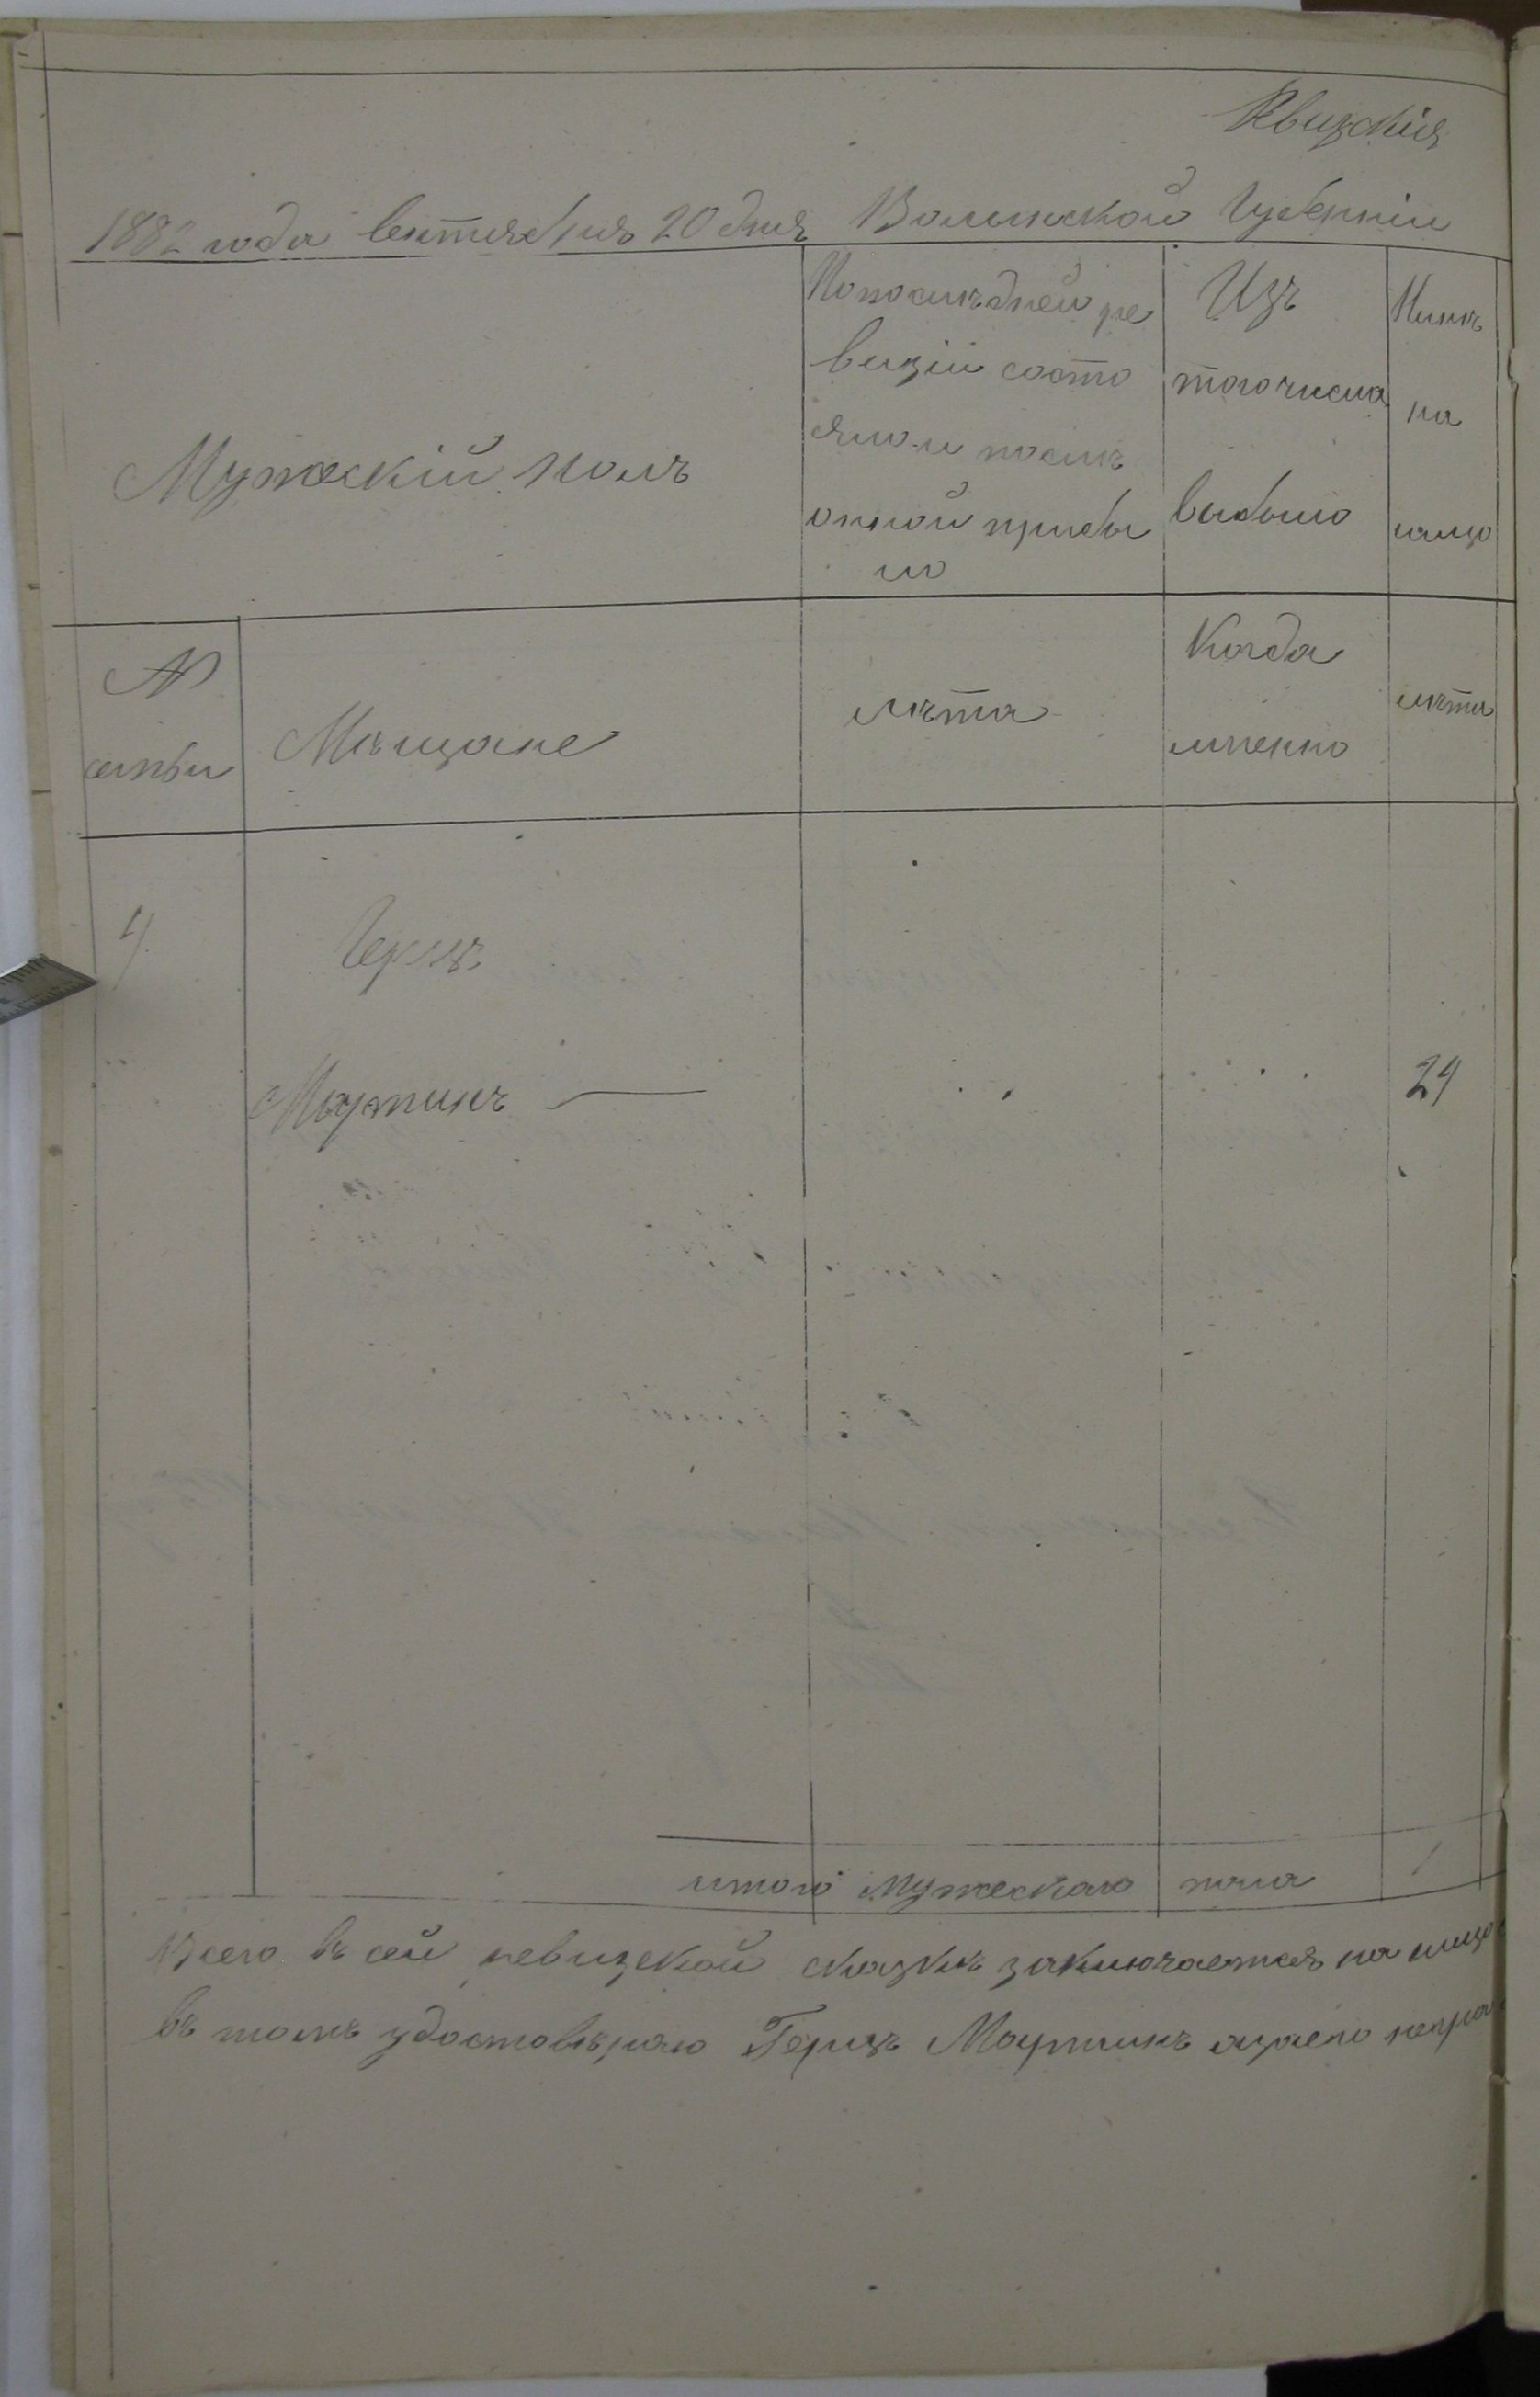 Рвизскія
1882 года Сентября 20 дня Волынской Губерніи
Мужескій полъ
По послѣдней ре
визіи состо
яло и послѣ
онной прибы
ло
Изъ
того числа
выбыло
Нынѣ
на
лицо
№
семьи
Мѣщане
лѣта
Когда
именно
лѣта
4
Герцъ
Мартинъ —
24
итого мужескаго пола 1
Всего въ сей ревизской сказкѣ заключается на лицо
въ томъ удостовѣряю Герцъ Мартинъ